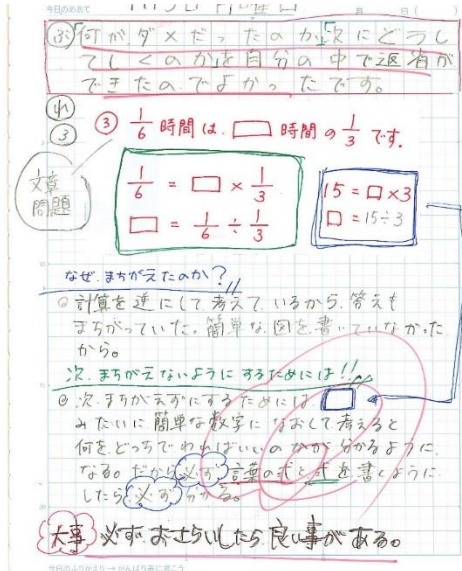 今日のめあて
月 日( )
ふ 何が、ダメだったのか、次にどうし
てしくのかを自分の中で返省が
できたのでよかったです。
れ
3
③ 1/6 時間は、□時間の 1/3 です。
文章
問題
1/6 = □ × 1/3
□ = 1/6 ÷ 1/3
15 = □ × 3
□ = 15 ÷ 3
なぜ、まちがえたのか?
◎計算を逆にして、考えて、いるから、答えも
まちがっていた。簡単な、図を、書いていなかった
から。
次、まちがえないようにするためには!!
◎次、まちがえずにするためには、
みたいに簡単な数字になおして考えると
何を、どっちでわればいいのかが分かるように、
なる。だから、必ず、言葉の式と式を書くように
したら必ず分かる。
大事 必ず、おさらいしたら、良い事がある。
今日のふりかえり→がんばり表に書こう